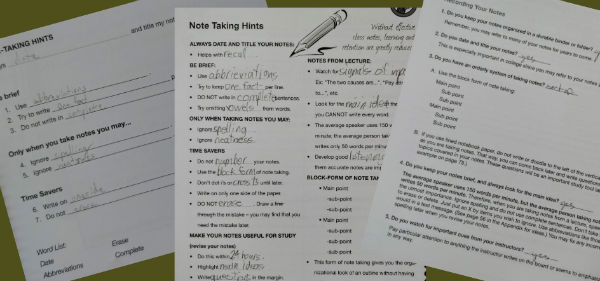 -TAKING HINTS
and title my not
date
brief
1. Use abbreviating
2. Try to write one fact
3. Do not write in complete
Only when you may take notes you may...
4. Ignore spelling
5. Ignore neatness
Time Savers
6. Write on
7. Do not
Word List:
Date
Abbreviations
Erase
Complete
Note Taking Hints
ALWAYS DATE AND TITLE YOUR NOTES:
• Helps with recall
BE BRIEF:
• Use abbrieviations
• Try to keep one fact per line.
• DO NOT write in complete sentences.
• Try omitting vowels from words.
ONLY WHEN TAKING NOTES YOU MAY:
• Ignore spelling
• Ignore neatness
TIME SAVERS
• Do not number your notes.
• Use the block form of note taking.
• Don't dot i's or cross t's until later.
• Write on only one side of the paper.
• DO NOT erase. Draw a line
through the mistake – you may find that you
need the mistake later.
MAKE YOUR NOTES USEFUL FOR STUDY
(revise your notes)
• Do this within 24 hours.
• Highlight main ideas
• Write questions in the margin.
Without effective
class notes, learning and
retention are greatly reduced
NOTES FROM LECTURE:
• Watch for signals of
Ex: "The two causes are...", "Pay
to...", etc.
• Look for the main idea
you CANNOT write every word.
• The average speaker uses 150 w
minute; the average person takin
writes only 50 words per minu
• Develop good listening
there accurate notes are im
BLOCK-FORM OF NOTE TAK
• Main point
-sub-point
-sub-point
• Main point
-sub-point
-sub-point
• This form of note taking gives you the orga-
nizational look of an outline without having
Recording Your Notes
1. Do you keep your notes organized in a durable binder or folder?
Remember, you may refer to many of your notes for years to come.
2. Do you date and title your notes? yes
This is especially important in college since you may refer to your notes
3. Do you have an orderly system of taking notes?
A. Use the block form of note taking:
Main point
Sub point
Sub point
Main point
Sub point
Sub point
B. If you use lined notebook paper, do not write or doodle to the left of the vertical
as you are taking notes. That way, you can come back later and write questions
topics covered in your notes. These questions will be an important study tool la
example on page
4. Do you keep your notes brief, and always look for the main idea? yes
The average speaker uses 150 words per minute, but the average person taking no
5. Do you watch for important clues from your instructors? yes
Pay particular attention to anything the instructor writes on the board or seems to emphasize
in any way.